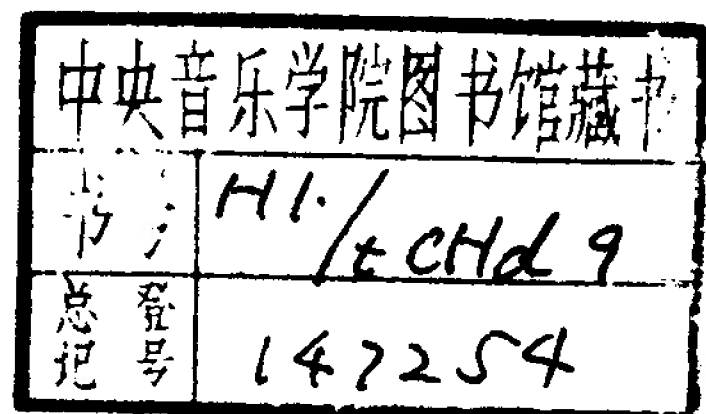 中央音乐学院图书馆藏书
书号 H1./tCHd9
总登记号 147254